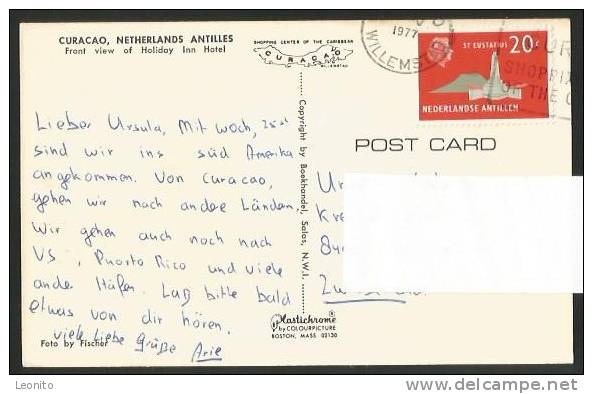 CURACAO, NETHERLANDS ANTILLES
Front view of Holiday Inn Hotel
SHOPPING CENTER OF THE CARIBBEAN
CURACAO
WILLEMSTAD
1977
WILLEMSTAD
ST EUSTATIUS 20c
NEDERLANDSE ANTILLEN
SHOPPI
OF THE C
POST CARD
Copyright by Boekhandel, Salas, N.W.I.
Lieber Ursula, Mit woch, 25st
sind wir ins süd Amerika
angekommen. Von Curacao,
gehen wir nach andere Länden.
Wir gehen auch noch nach
VS, Puorto Rico und viele
ande Häfen. Laß bitte bald
etwas von dir hören.
viele liebe Grüße Arie
Ur
Kre
Foto by Fischer
Plastichrome®
by COLOURPICTURE
BOSTON, MASS 02130
Leonito
delcampe.net